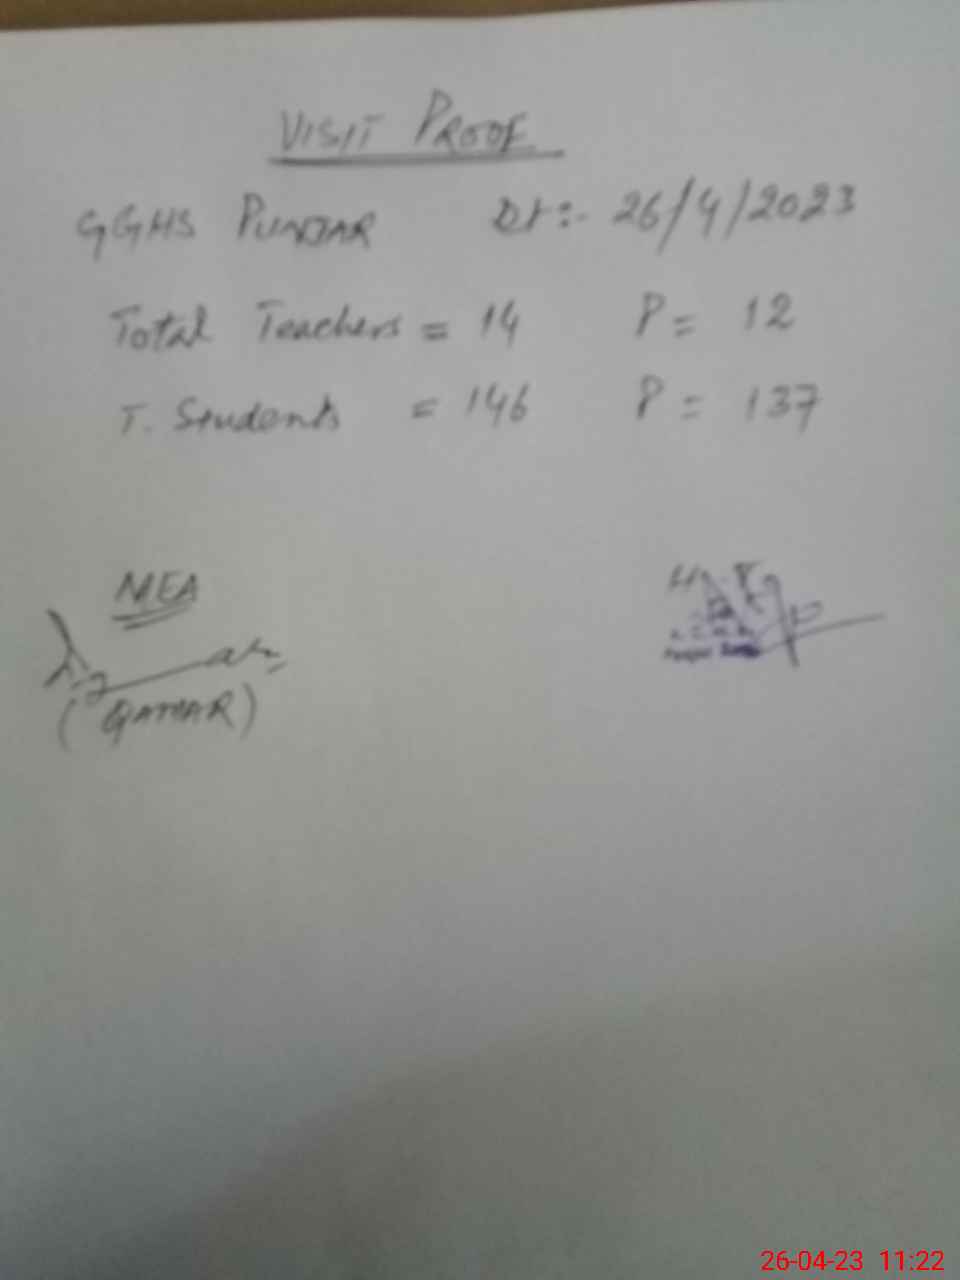 VISIT PROOF
GGHS PUNJAR Dt:- 26/4/2023
Total Teachers = 14 P = 12
T. Students = 146 P = 137
MEA
26-04-23 11:22